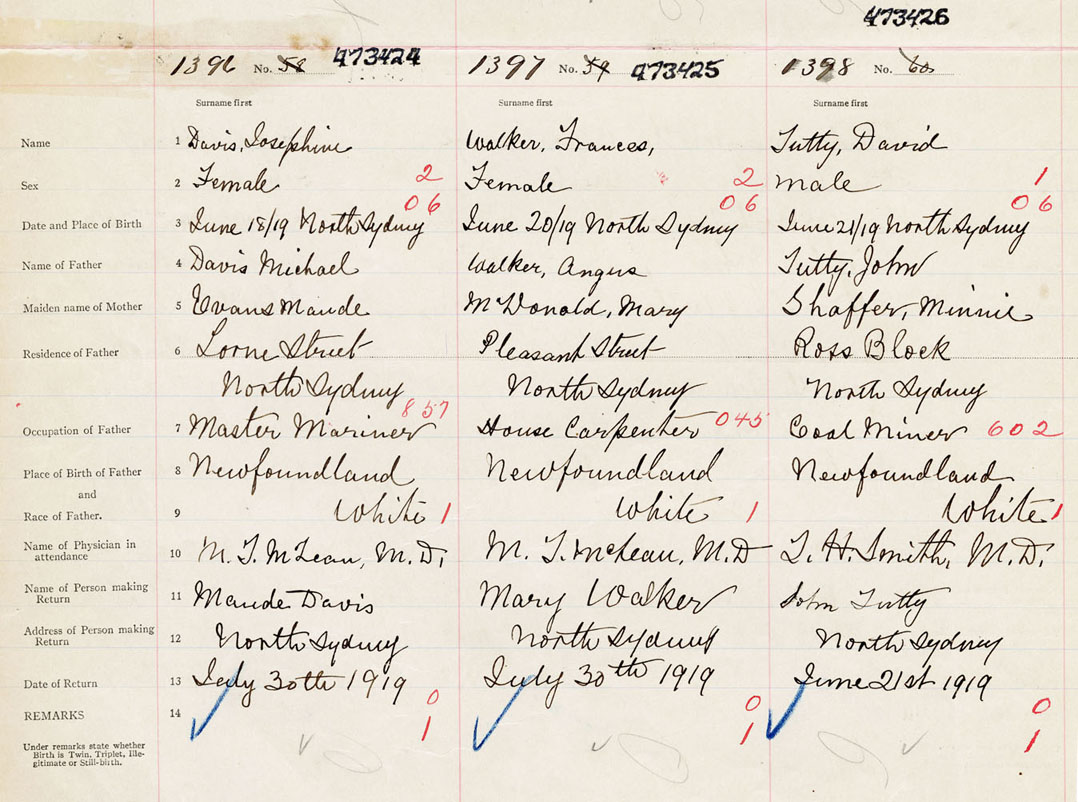 473426
1396 No. 58 473424 1397 No. 59 473425 1398 No. 60
Surname first Surname first Surname first
Name 1 Davis, Josephine Walker, Frances, Tutty, David
Sex 2 Female 2 Female 2 male 1
06 06 06
Date and Place of Birth 3 June 18/19 North Sydney June 20/19 North Sydney June 21/19 North Sydney
Name of Father 4 Davis Michael Walker, Angus Tutty, John
Maiden name of Mother 5 Evans Maude McDonald, Mary Shaffer, Minnie
Residence of Father 6 Lorne Street Pleasant Street Ross Block
North Sydney North Sydney North Sydney
857
Occupation of Father 7 Master Mariner House Carpenter 045 Coal Miner 602
Place of Birth of Father 8 Newfoundland Newfoundland Newfoundland
and
Race of Father. 9 White 1 White 1 White 1
Name of Physician in
attendance 10 M. T. McLean, M.D. M. T. McLean, M.D T. H. Smith, M.D.
Name of Person making
Return 11 Maude Davis Mary Walker John Tutty
Address of Person making
Return 12 North Sydney North Sydney North Sydney
Date of Return 13 July 30th 1919 July 30th 1919 June 21st 1919
0 0 0
REMARKS 14
1 1 1
Under remarks state whether
Birth is Twin, Triplet, Ille-
gitimate or Still-birth.